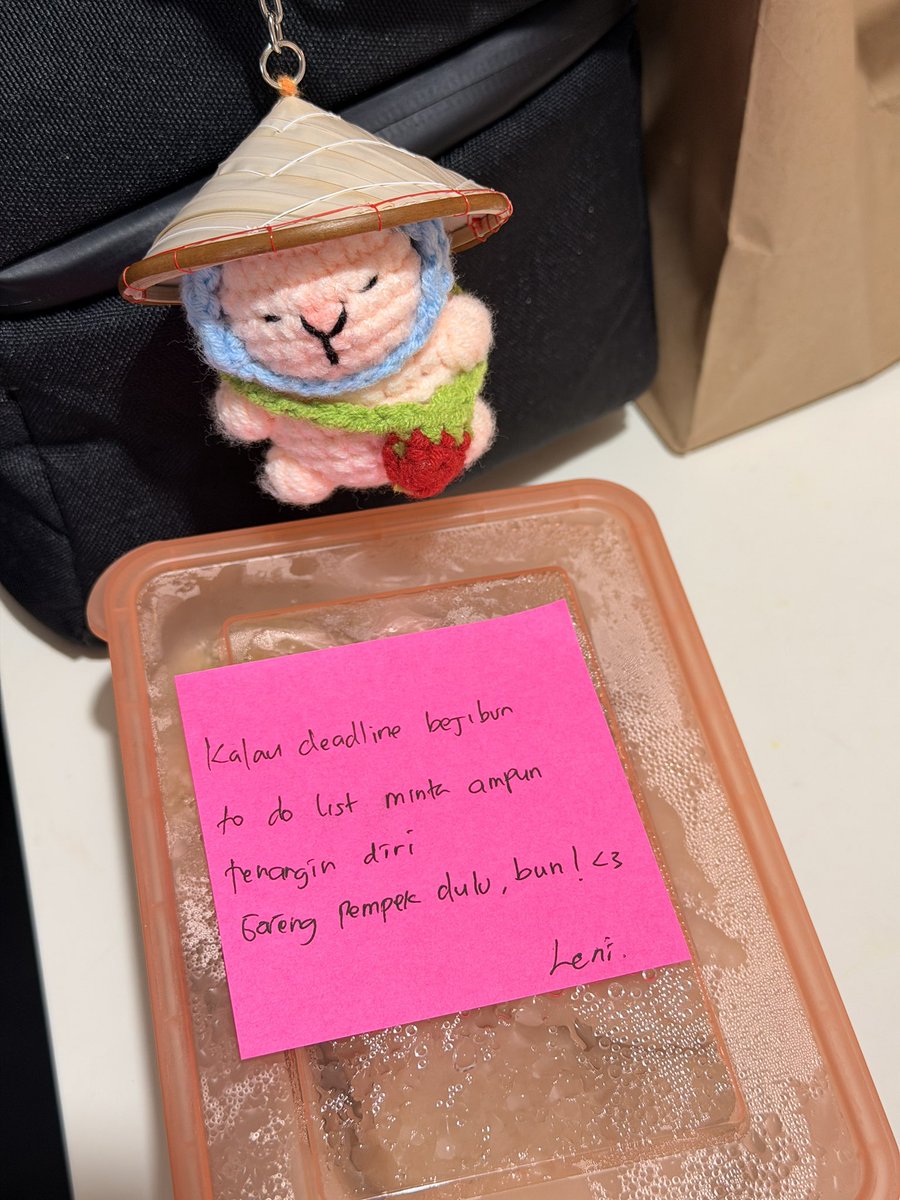 Kalau deadline bejibun
to do list minta ampun
tenangin diri
Goreng pempek dulu, bun! <3
Leni.